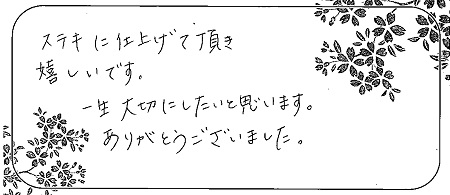 ステキに仕上げて頂き
嬉しいです。
一生大切にしたいと思います。
ありがとうございました。